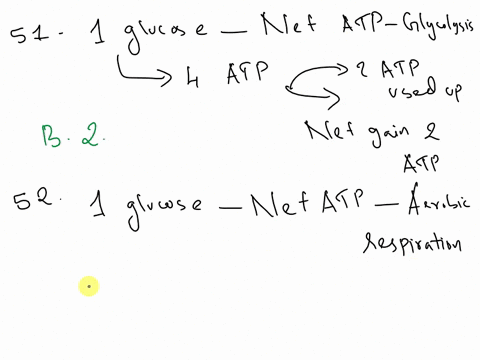 51. 1 glucose — Net ATP – Glycolysis
4 ATP 2 ATP
used up
B. 2. Net gain 2
ATP
52. 1 glucose — Net ATP — Aerobic
respiration